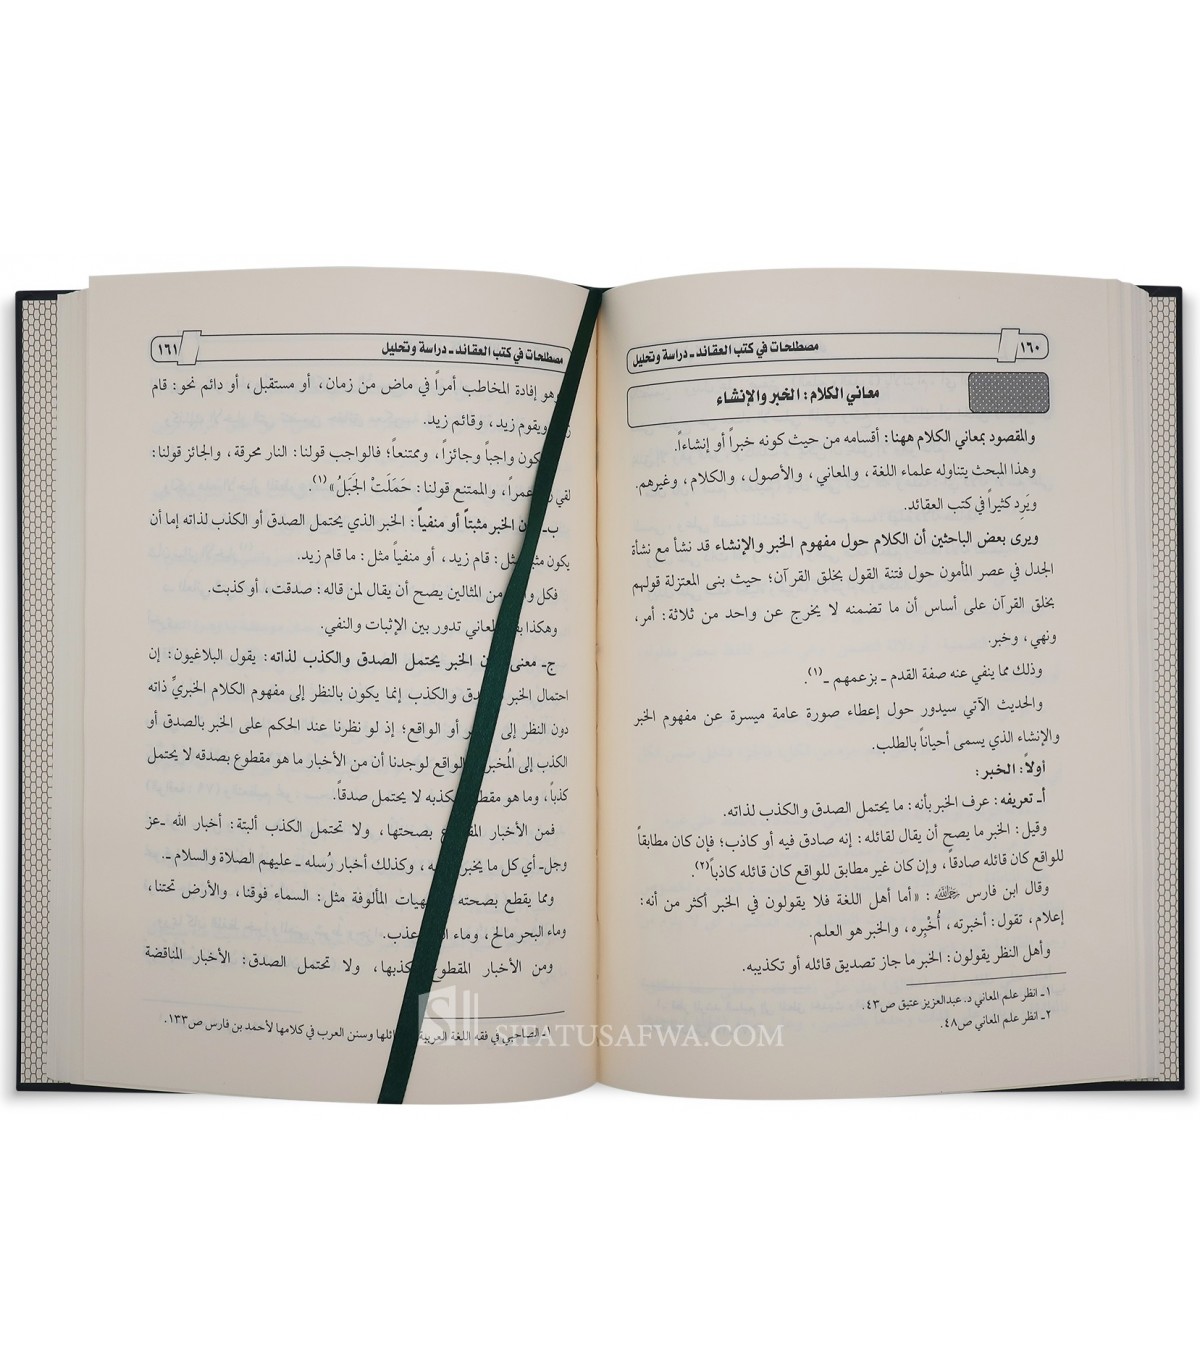 ١٦٠
مصطلحات في كتب العقائد ـ دراسة وتحليل
معاني الكلام: الخبر والإنشاء
والمقصود بمعاني الكلام ههنا: أقسامه من حيث كونه خبراً أو إنشاءاً.
وهذا المبحث يتناوله علماء اللغة، والمعاني، والأصول، والكلام، وغيرهم.
ويَرِد كثيراً في كتب العقائد.
ويرى بعض الباحثين أن الكلام حول مفهوم الخبر والإنشاء قد نشأ مع نشأة
الجدل في عصر المأمون حول فتنة القول بخلق القرآن؛ حيث بنى المعتزلة قولهم
بخلق القرآن على أساس أن ما تضمنه لا يخرج عن واحد من ثلاثة: أمر،
ونهي، وخبر.
وذلك مما ينفي عنه صفة القدم ـ بزعمهم ـ(١).
والحديث الآتي سيدور حول إعطاء صورة عامة ميسرة عن مفهوم الخبر
والإنشاء الذي يسمى أحياناً بالطلب.
أولاً: الخبر:
أـ تعريفه: عرف الخبر بأنه: ما يحتمل الصدق والكذب لذاته.
وقيل: الخبر ما يصح أن يقال لقائله: إنه صادق فيه أو كاذب؛ فإن كان مطابقاً
للواقع كان قائله صادقاً، وإن كان غير مطابق للواقع كان قائله كاذباً(٢).
وقال ابن فارس رحمه الله: «أما أهل اللغة فلا يقولون في الخبر أكثر من أنه:
إعلام، تقول: أخبرته، أُخْبِره، والخبر هو العلم.
وأهل النظر يقولون: الخبر ما جاز تصديق قائله أو تكذيبه.
١ـ انظر علم المعاني د. عبدالعزيز عتيق ص٤٣.
٢ـ انظر علم المعاني ص٤٨.
١٦١
مصطلحات في كتب العقائد ـ دراسة وتحليل
وهو إفادة المخاطب أمراً في ماض من زمان، أو مستقبل، أو دائم نحو: قام
ويقوم زيد، وقائم زيد.
كون واجباً وجائزاً، وممتنعاً؛ فالواجب قولنا: النار محرقة، والجائز قولنا:
لقي عمراً، والممتنع قولنا: حَمَلَتْ الجَبَلُ»(١).
ب ـ ن الخبر مثبتاً أو منفياً: الخبر الذي يحتمل الصدق أو الكذب لذاته إما أن
يكون مثل: قام زيد، أو منفياً مثل: ما قام زيد.
فكل من المثالين يصح أن يقال لمن قاله: صدقت، أو كذبت.
وهكذا المعاني تدور بين الإثبات والنفي.
ج ـ معنى ن الخبر يحتمل الصدق والكذب لذاته: يقول البلاغيون: إن
احتمال الخبر دق والكذب إنما يكون بالنظر إلى مفهوم الكلام الخبريِّ ذاته
دون النظر إلى أو الواقع؛ إذ لو نظرنا عند الحكم على الخبر بالصدق أو
الكذب إلى المُخبر الواقع لوجدنا أن من الأخبار ما هو مقطوع بصدقه لا يحتمل
كذباً، وما هو مقط كذبه لا يحتمل صدقاً.
فمن الأخبار بصحتها، ولا تحتمل الكذب ألبتة: أخبار الله ـ عز
وجل ـ أي كل ما يخبر ه، وكذلك أخبار رُسله ـ عليهم الصلاة والسلام ـ.
ومما يقطع بصحته هيات المألوفة مثل: السماء فوقنا، والأرض تحتنا،
وماء البحر مالح، وماء عذب.
ومن الأخبار المقطوع كذبها، ولا تحتمل الصدق: الأخبار المناقضة
١ـ الصاحبي في فقه اللغة العربية ائلها وسنن العرب في كلامها لأحمد بن فارس ص١٣٣.
SIFATUSAFWA.COM